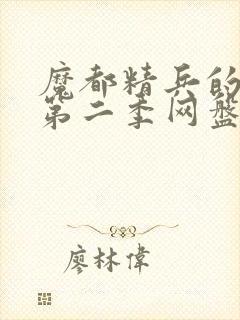 魔都精兵的
第二季网盘
廖林偉